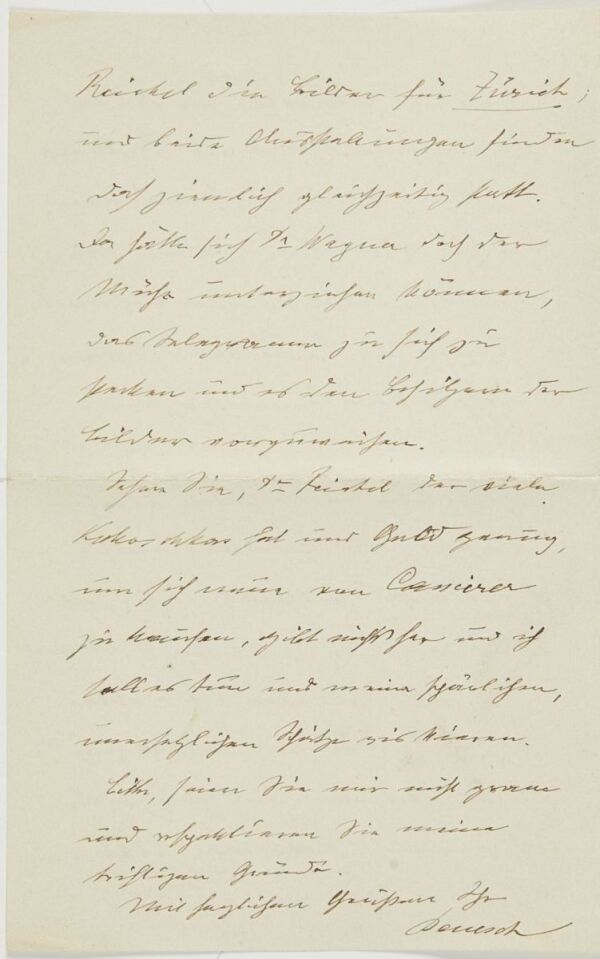 Reichel die Bilder für Zürich,
und beide Ausstellungen finden
doch ziemlich gleichzeitig statt.
Da hätte sich Dr Wagner doch der
Mühe unterziehen können,
das Telegramm zu sich zu
stecken und es den Besitzern der
Bilder vorzuweisen.
Sehen Sie, Dr Reichel der viele
Kokoschkas hat und Geld genug,
um sich neue von Cassierer
zu kaufen, gibt nichts her und ich
soll es tun und meine spärlichen,
unersetzlichen Schätze riskieren.
Bitte, seien Sie mir nicht gram
und respektieren Sie meine
triftigen Gründe.
Mit herzlichen Grüßen Ihr